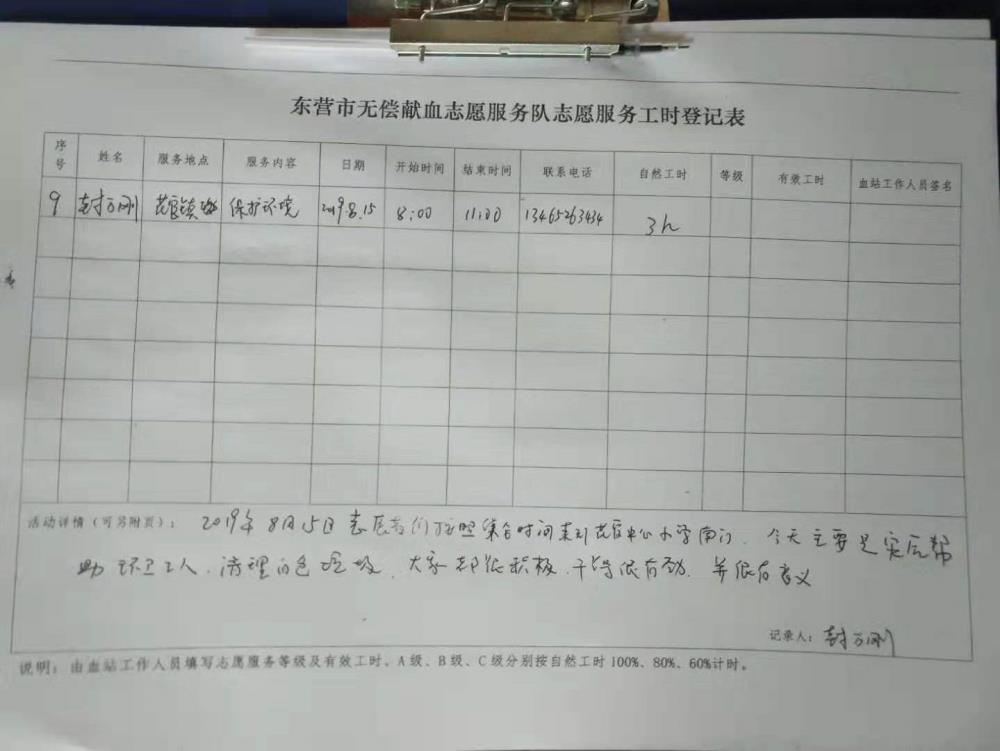 东营市无偿献血志愿服务队志愿服务工时登记表
序号 姓名 服务地点 服务内容 日期 开始时间 结束时间 联系电话 自然工时 等级 有效工时 血站工作人员签名
9 封万刚 花官镇 保护环境 2019.8.15 8:00 11:00 13465263434 3h
活动详情（可另附页）： 2019年8月15日志愿者们按照集合时间来到花官中心小学南门，今天主要是家后帮
助环卫工人，清理白色垃圾，大家都很积极，干得很有劲，并很有意义
记录人：封万刚
说明：由血站工作人员填写志愿服务等级及有效工时。A级、B级、C级分别按自然工时100%、80%、60%计时。